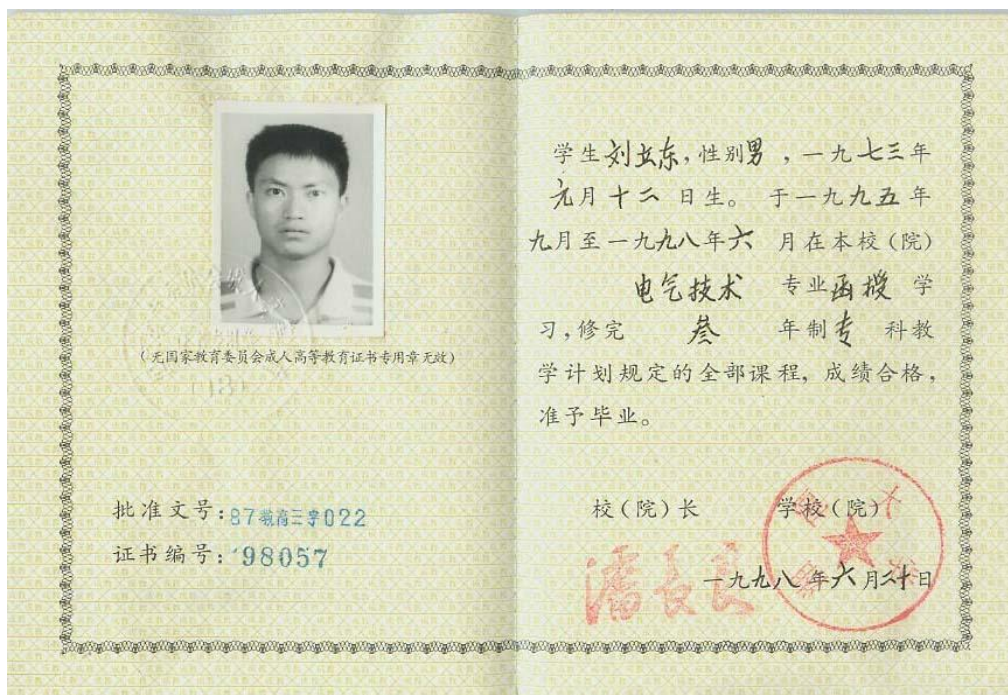 (无国家教育委员会成人高等教育证书专用章无效)
批准文号:87教高三字022
证书编号:98057
学生刘立东,性别男,一九七三年
元月十二日生。于一九九五年
九月至一九九八年六月在本校(院)
电气技术 专业函授学
习,修完 叁 年制专科教
学计划规定的全部课程,成绩合格,
准予毕业。
校(院)长 学校(院)
潘长良
一九九八年六月二十日